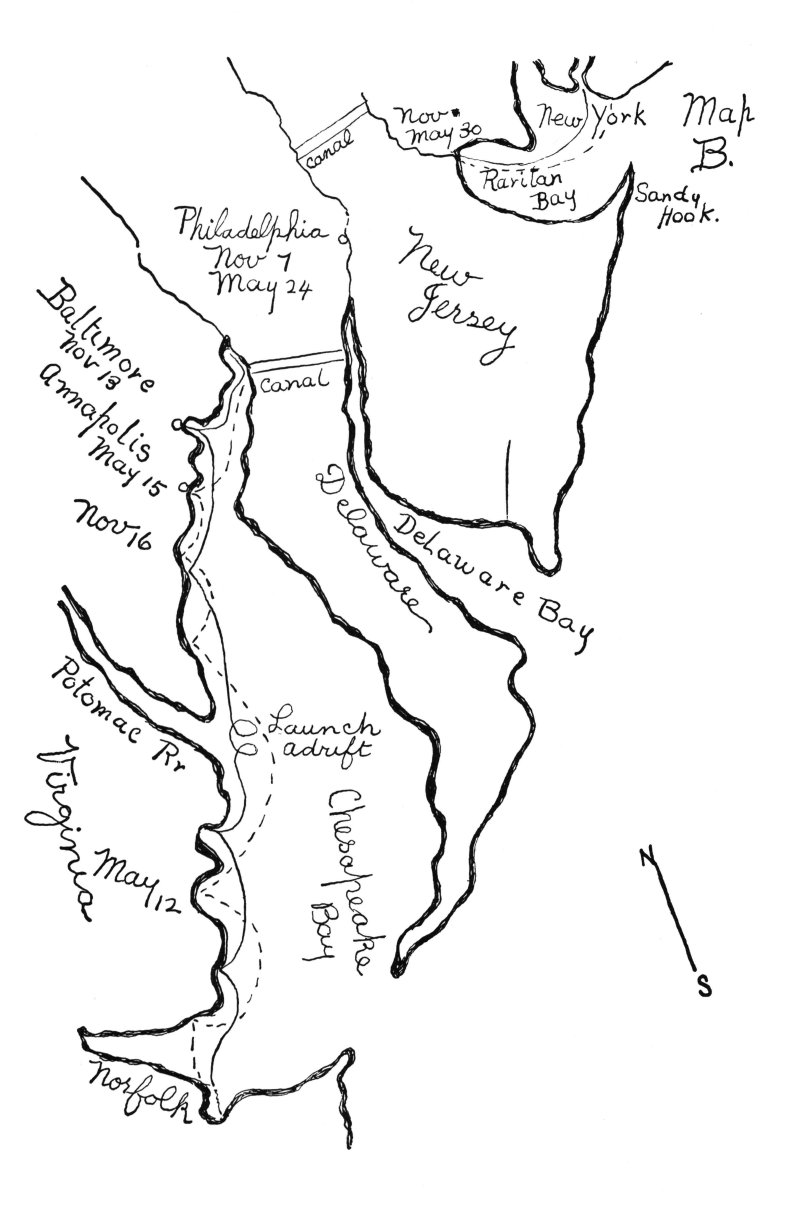 Map
B.
New York
Nov.
May 30
canal
Raritan
Bay
Sandy
Hook.
Philadelphia
Nov 7
May 24
New
Jersey
Baltimore
Nov 13
canal
Annapolis
May 15
Nov 16
Delaware
Delaware Bay
Potomac Rr
Launch
adrift
Virginia
Chesapeake
Bay
May 12
N
S
Norfolk